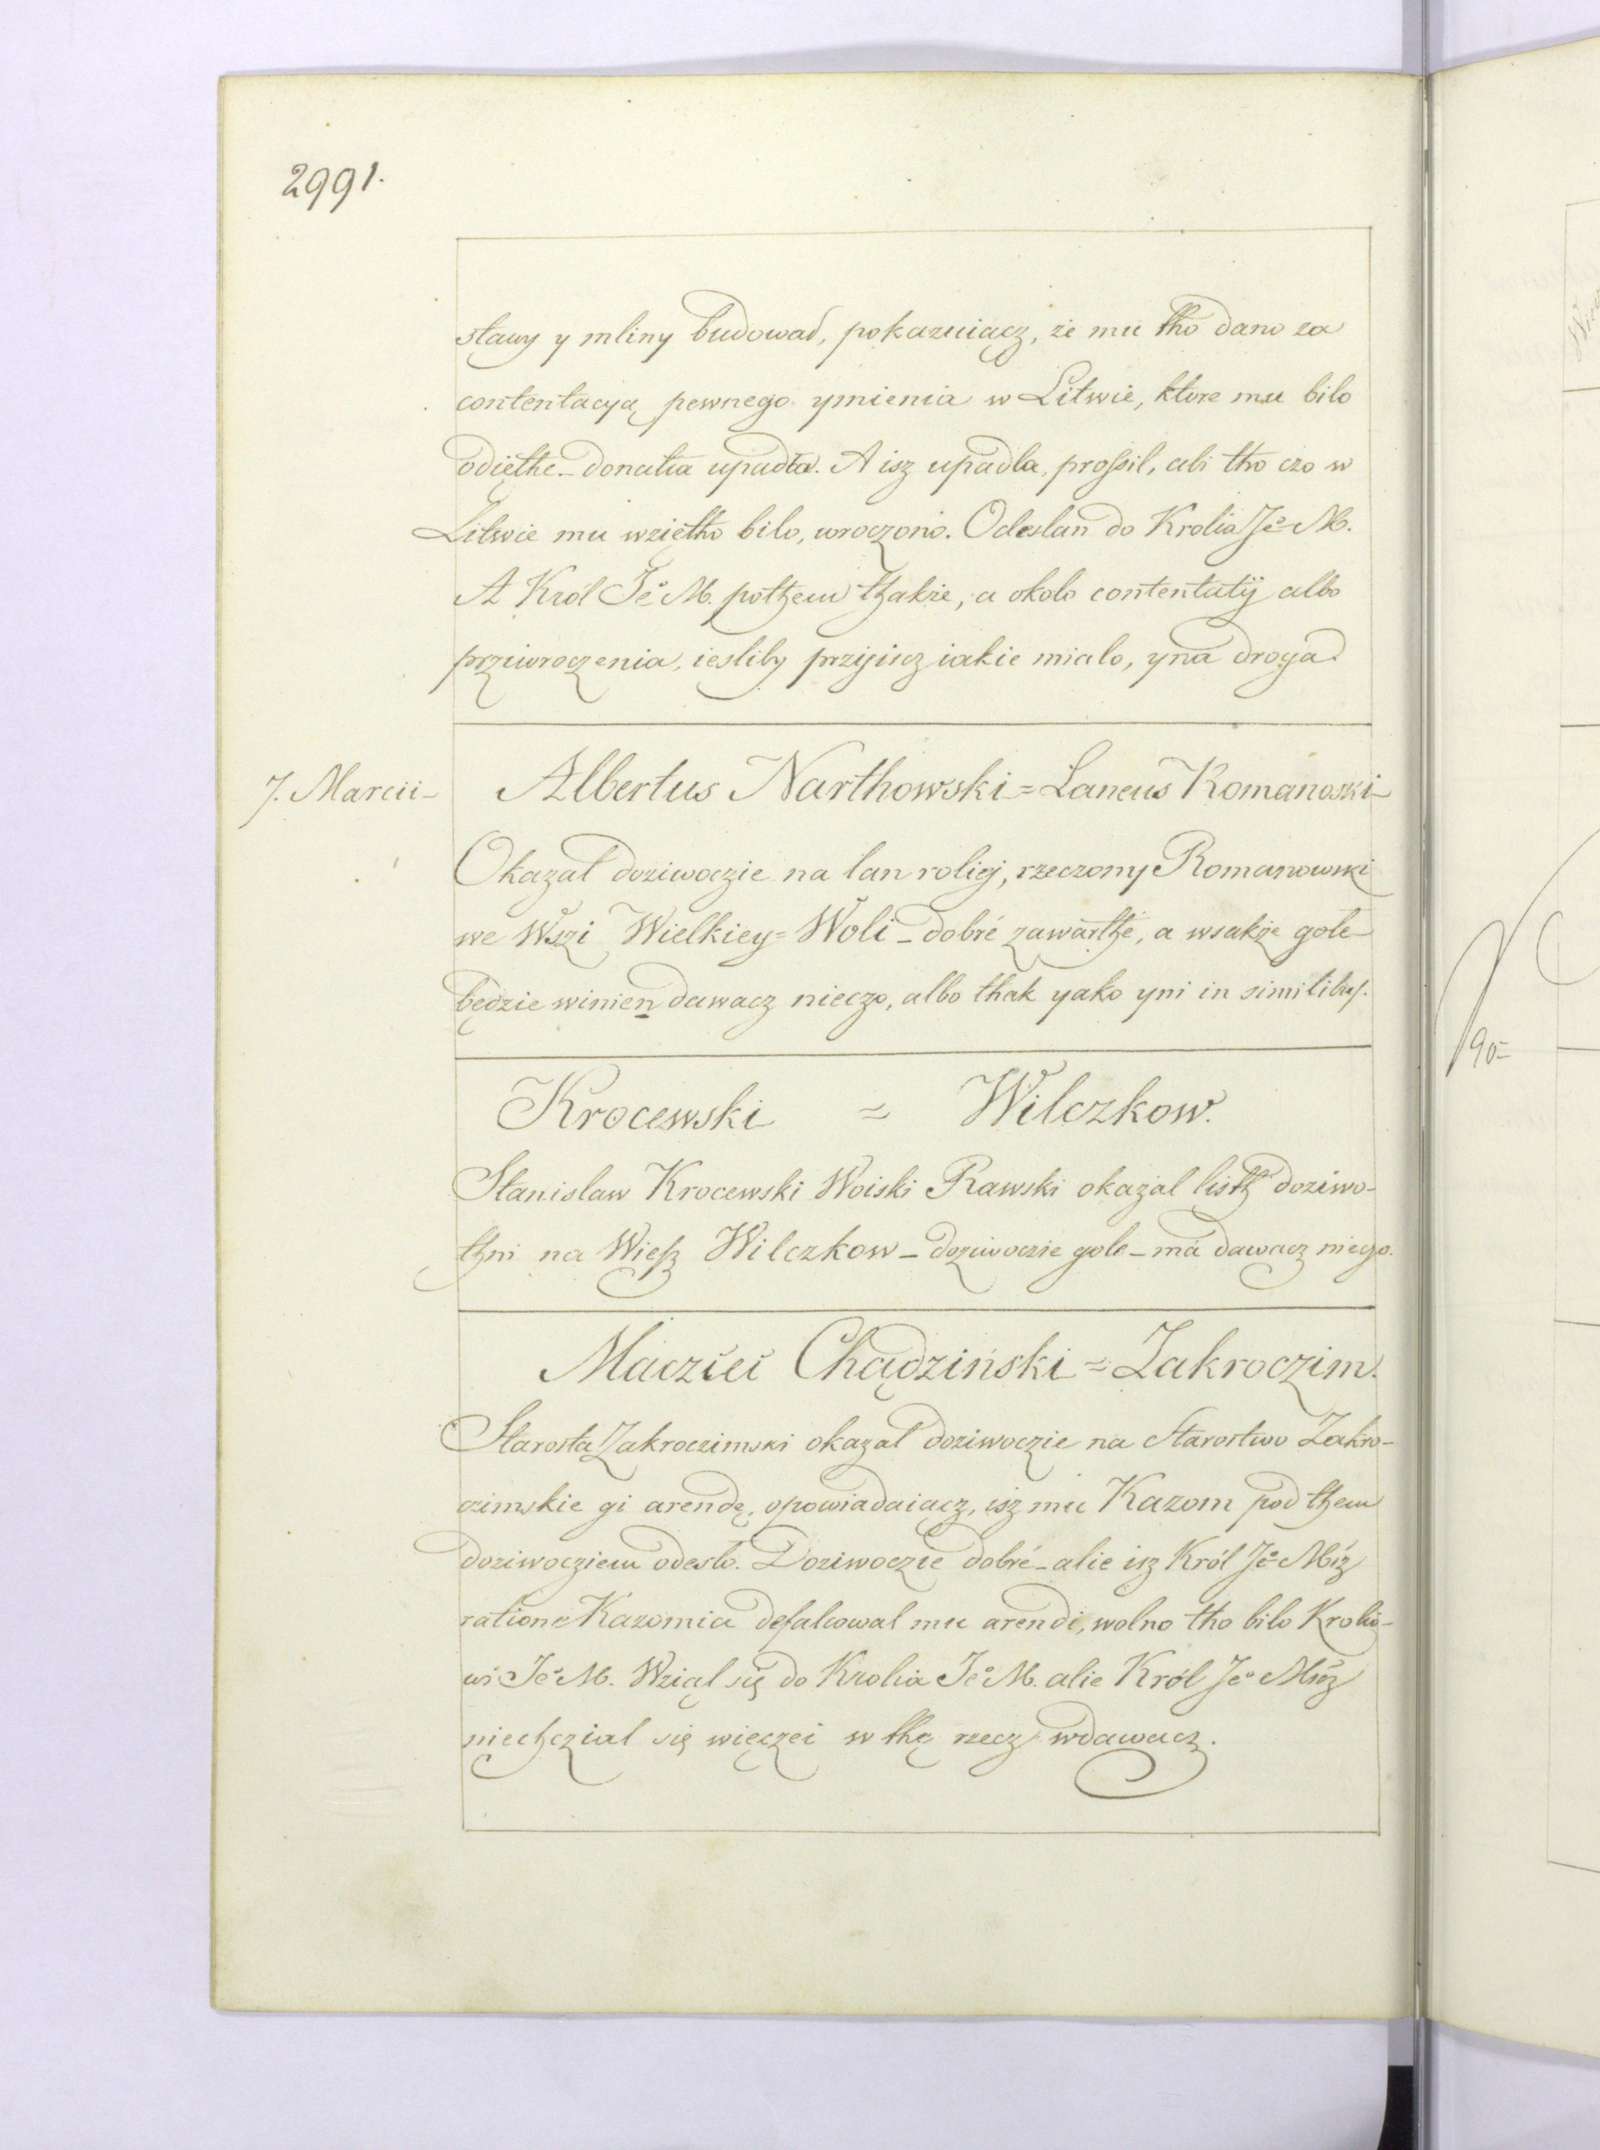 2991.
stawy y mliny budował, pokazuiącz, że mu tho dano za
contentacyą pewnego ymienia w Litwie, ktore mu bilo
odięthe_ donatia upadła. A isz upadła, prossil, abi tho czo w
Litwie mu wziętho bilo, wroczono. Odeslan do Krolia Je° M.
A Król Je° M. pothem thakże, a około contentatij albo
prziwroczenia, iesliby przijscz iakie miało, yna droga.
7. Marcii_
Albertus Narthowski = Laneus Romanoski_
Okazał doziwoczie na łan roliej, rzeczony Romanowski
we Wszi Wielkiey = Woli _ dobré zawarthe, a wsakże gole_
będzie winien dawacz nieczo, albo thak yako yni in similibus.
Krocewski = Wilczkow.
Stanislaw Krocewski Woiski Rawski okazal listh doziwo-
thni na Wiesz Wilczkow _ doziwoczie gole _ má dawacz nieczo.
Macziei Chądziński = Zakroczim.
Starosta Zakroczimski okazał doziwoczie na Starostwo Zakro-
czimskie gi arendę, opowiadaiącz, isz mu Kazom pod them
doziwocziem odesło. Doziwoczie dobré _ alie isz Król Je° Mśz
ratione Kazomia defalcował mu arendi, wolno tho bilo Krolio-
wi Je° M. Wziął się do Krolia Je° M. alie Król Je° Mśz
niechcział się więczei w thę rzecz wdawacz.
90-